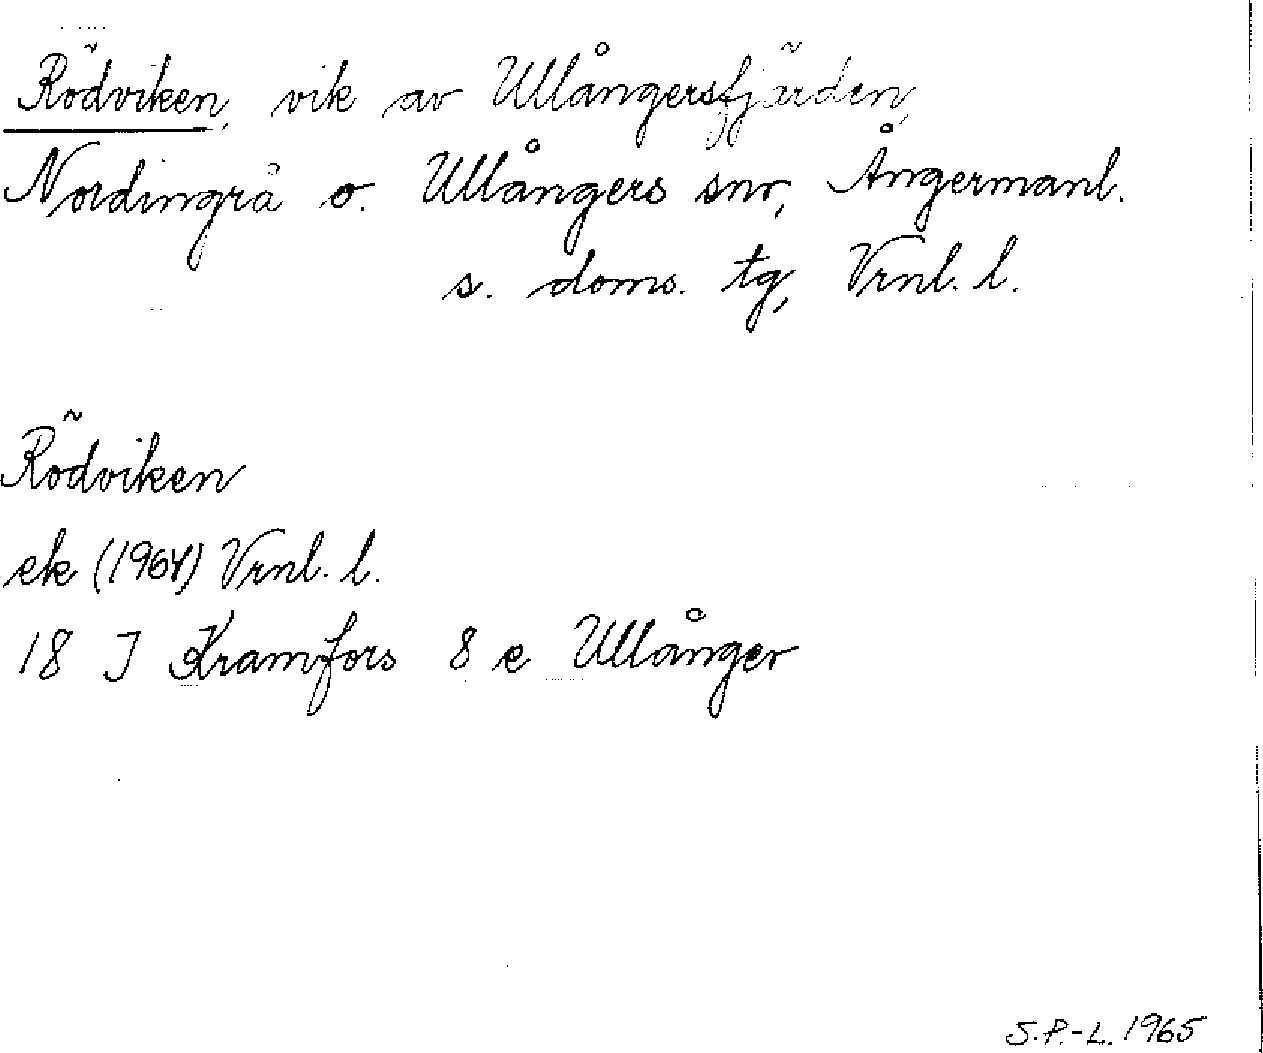 Rödviken, vik av Ullångersfjärden,
Nordingrå o. Ullångers snr, Ångermanl.
s. doms. tg, Vrnl. l.
Rödviken
ek (1964) Vrnl. l.
18 J Kramfors 8 e Ullånger
S.P.-L. 1965